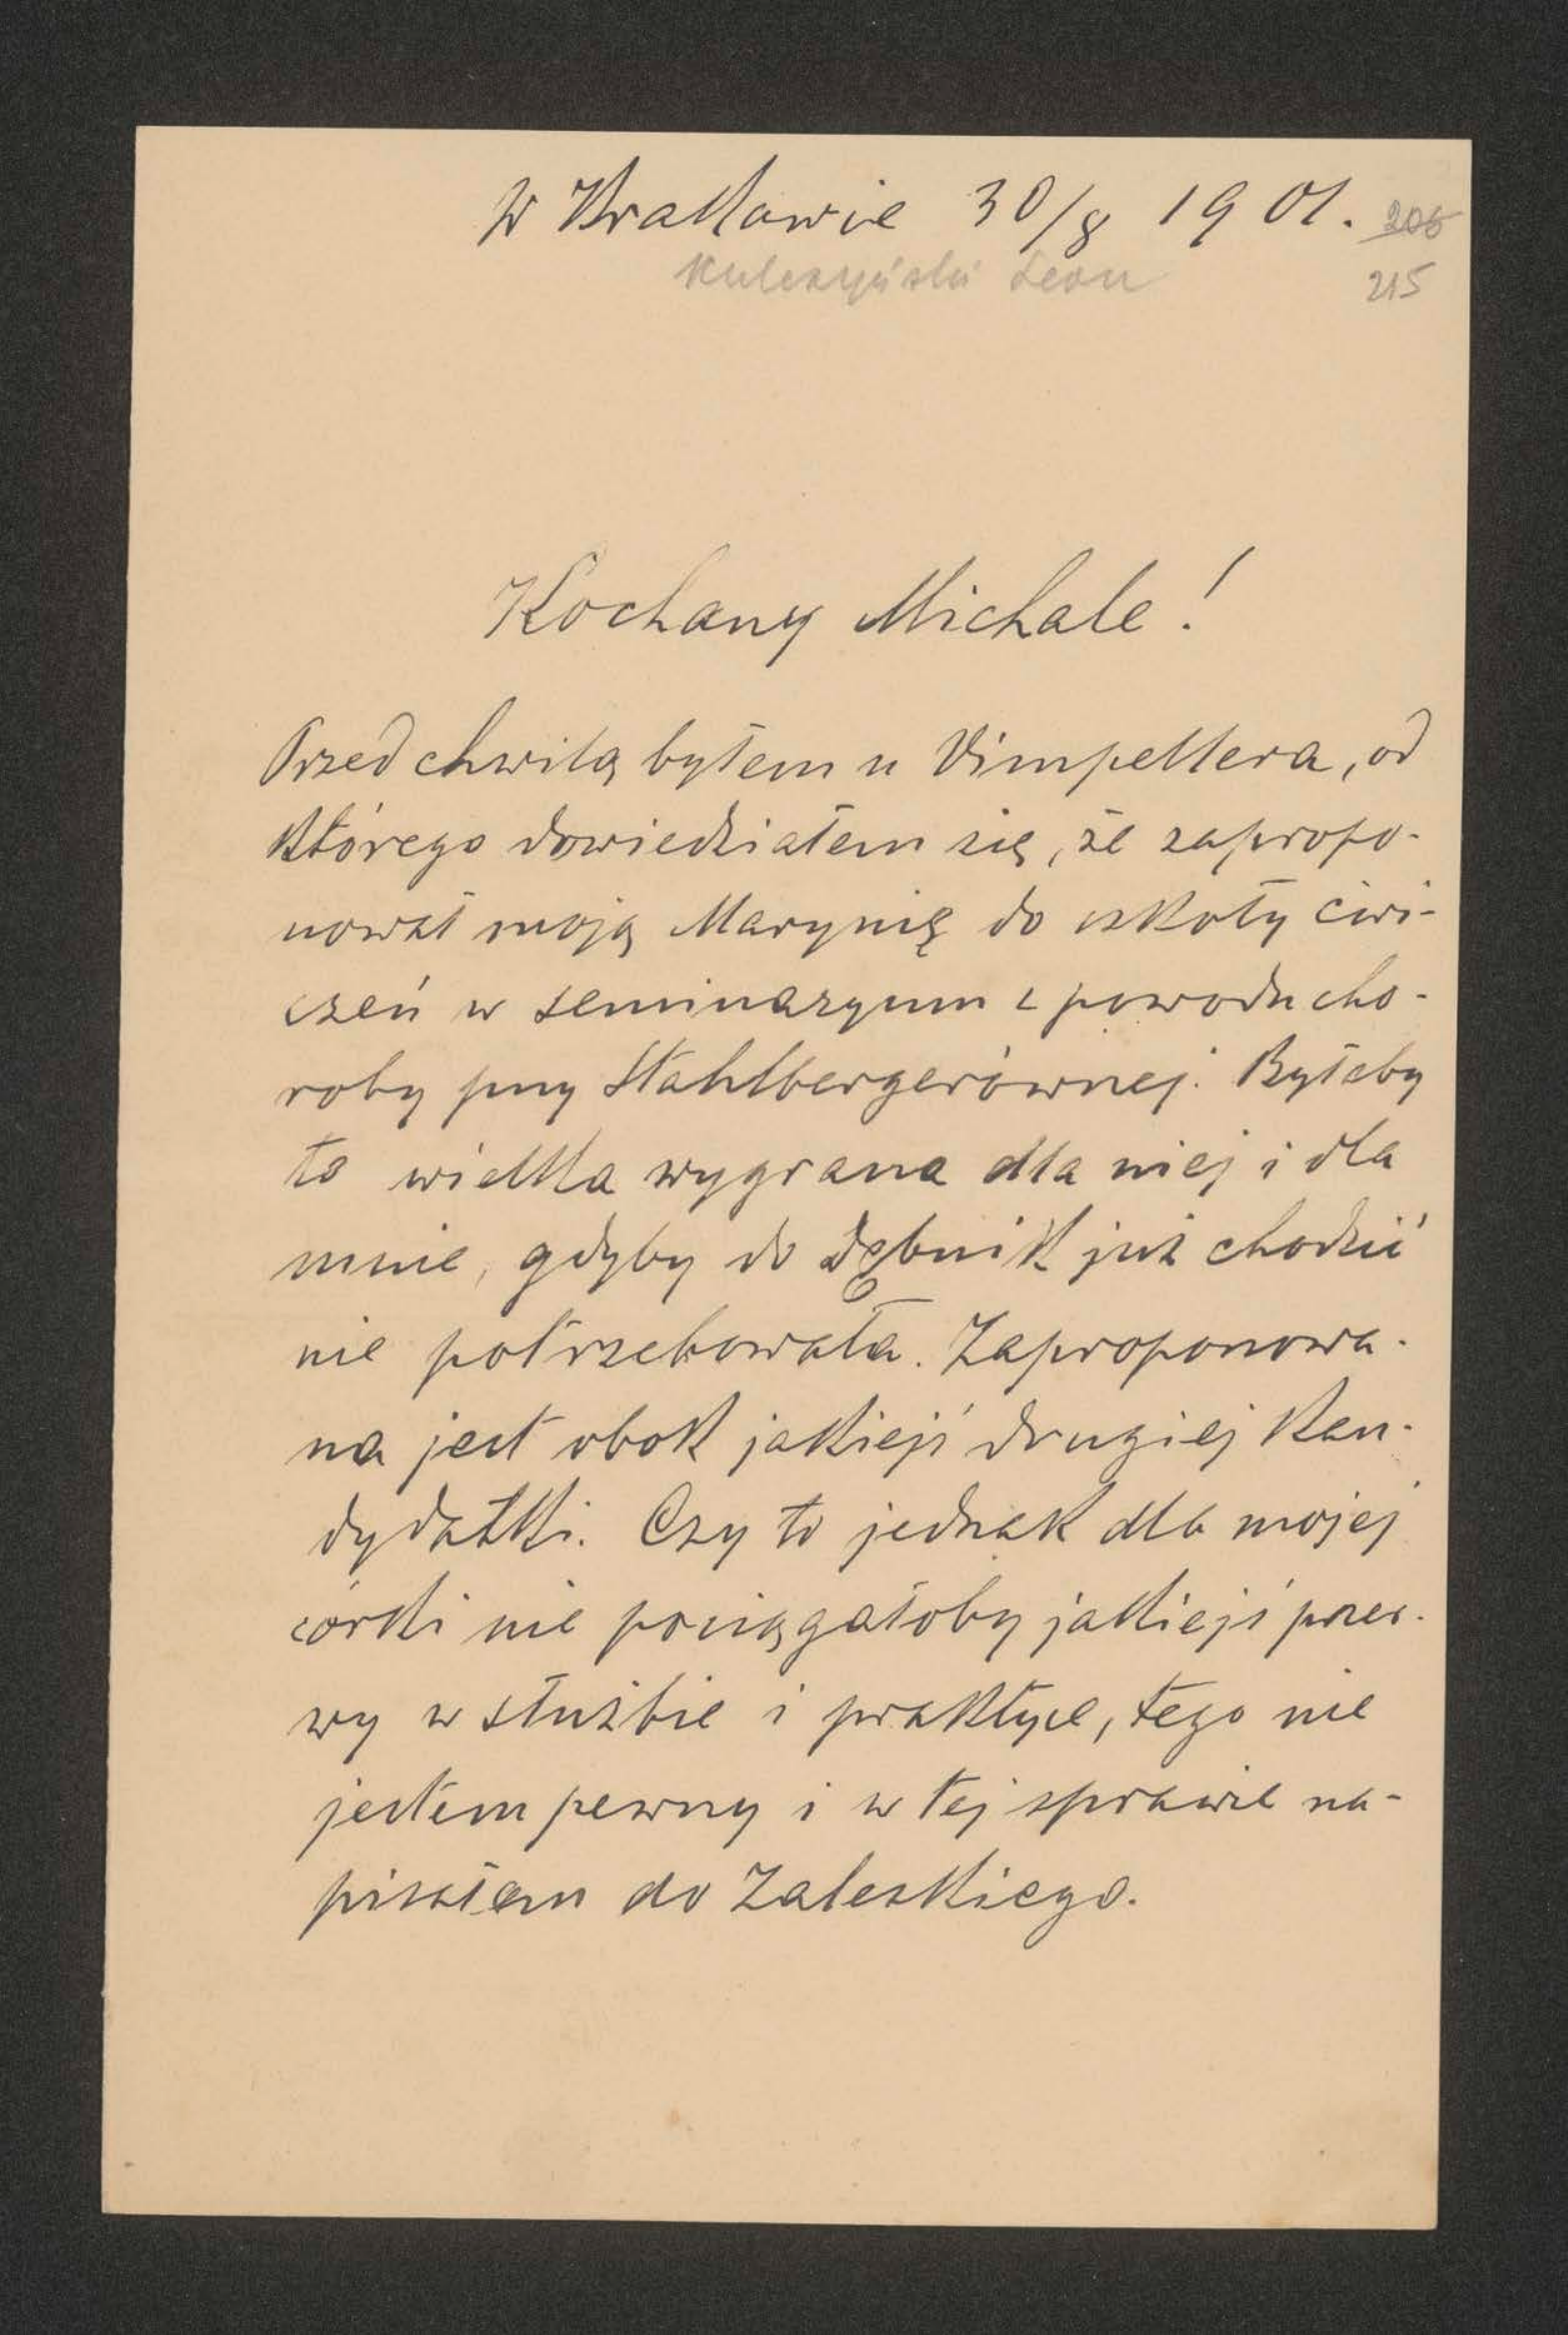 W Krakowie 30/8 1901. 206
Kulczyński Leon 215
Kochany Michale!
Przed chwilą byłem u Vimpellera, od
którego dowiedziałem się, że zapropo-
nował moją Marynię do szkoły ćwi-
czeń w seminaryum z powodu cho-
roby pny Stahlbergerównej. Byłaby
to wielka wygrana dla niej i dla
mnie, gdyby do Dębnik już chodzić
nie potrzebowała. Zaproponowa-
na jest obok jakiejś drugiej kan-
dydatki. Czy to jednak dla mojej
córki nie pociągałoby jakiejś przer-
wy w służbie i praktyce, tego nie
jestem pewny i w tej sprawie na-
pisałem do Zaleskiego.